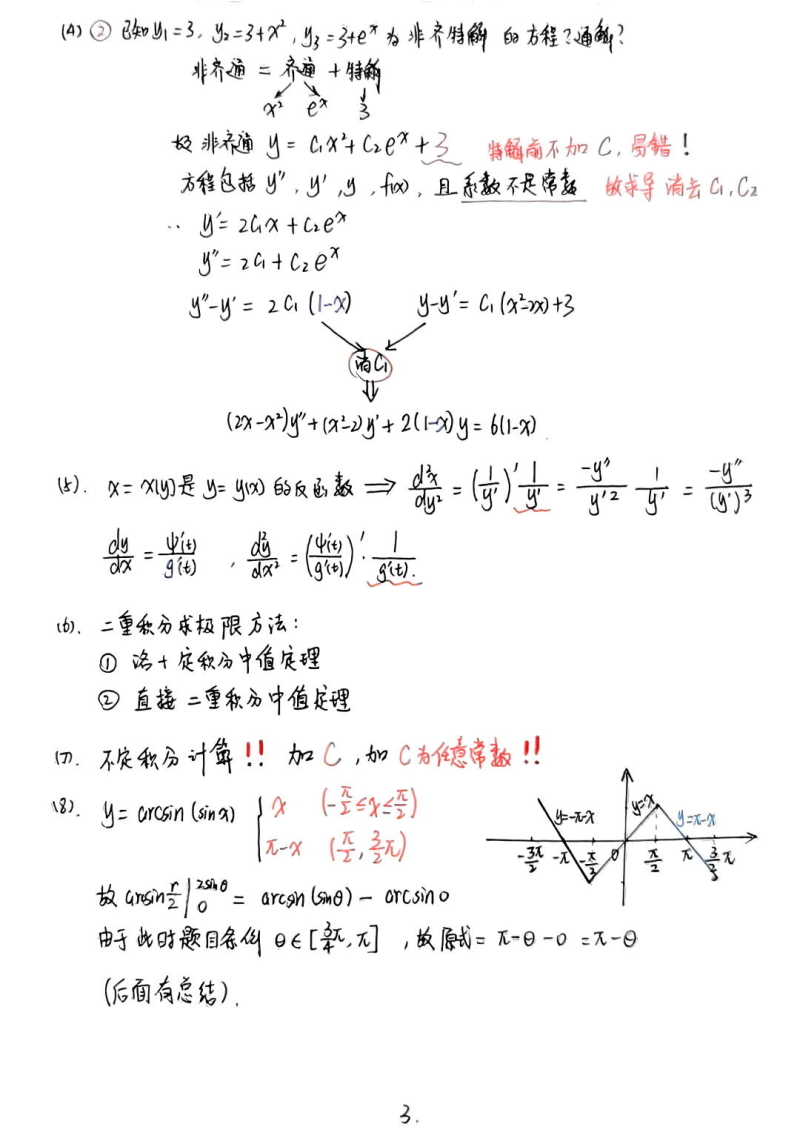 (4) ② 已知y₁=3, y₂=3+x², y₃=3+eˣ 为非齐特解的方程?通解?
非齐通 = 齐通 + 特解
x² eˣ 3
故非齐通 y = C₁x²+C₂eˣ+3 特解前不加C,易错!
方程包括 y'', y', y, f(x), 且系数不是常数 故求导消去C₁,C₂
∴ y'= 2C₁x+C₂eˣ
y''= 2C₁+C₂eˣ
y''-y' = 2C₁(1-x) y-y' = C₁(x²-2x)+3
消C₁
(2x-x²)y''+(x²-2)y'+2(1-x)y = 6(1-x)
(5). x=x(y)是y=y(x)的反函数 ⟹ d²x/dy² = (1/y')' 1/y' = -y''/y'² 1/y' = -y''/(y')³
dy/dx = ψ'(t)/g'(t) , d²y/dx² = (ψ'(t)/g'(t))' · 1/g'(t).
(6). 二重积分求极限方法:
① 洛+定积分中值定理
② 直接二重积分中值定理
(7). 不定积分计算!! 加C,加C为任意常数!!
(8). y = arcsin(sinx) { x (-π/2≤x≤π/2)
π-x (π/2, 3/2π)
y=-π-x y=x y=π-x
-3π/2 -π -π/2 0 π/2 π 3/2π
故 arcsin r/2 |₀^2sinθ = arcsin(sinθ) - arcsin0
由于此时题目条例 θ∈[3/4π,π] ,故原式= π-θ-0 =π-θ
(后面有总结).
3.